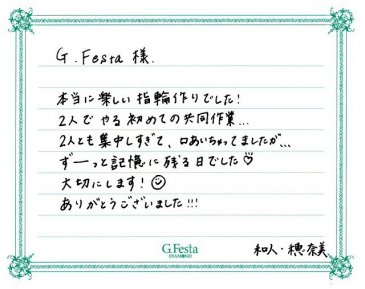 G.Festa 様.
本当に楽しい指輪作りでした!
2人でやる初めての共同作業...
2人とも集中しすぎて、口あいちゃってましたが...
ずーっと記憶に残る日でした♡
大切にします!☺
ありがとうございました!!!
G.Festa
DIAMOND
和人・穂奈美